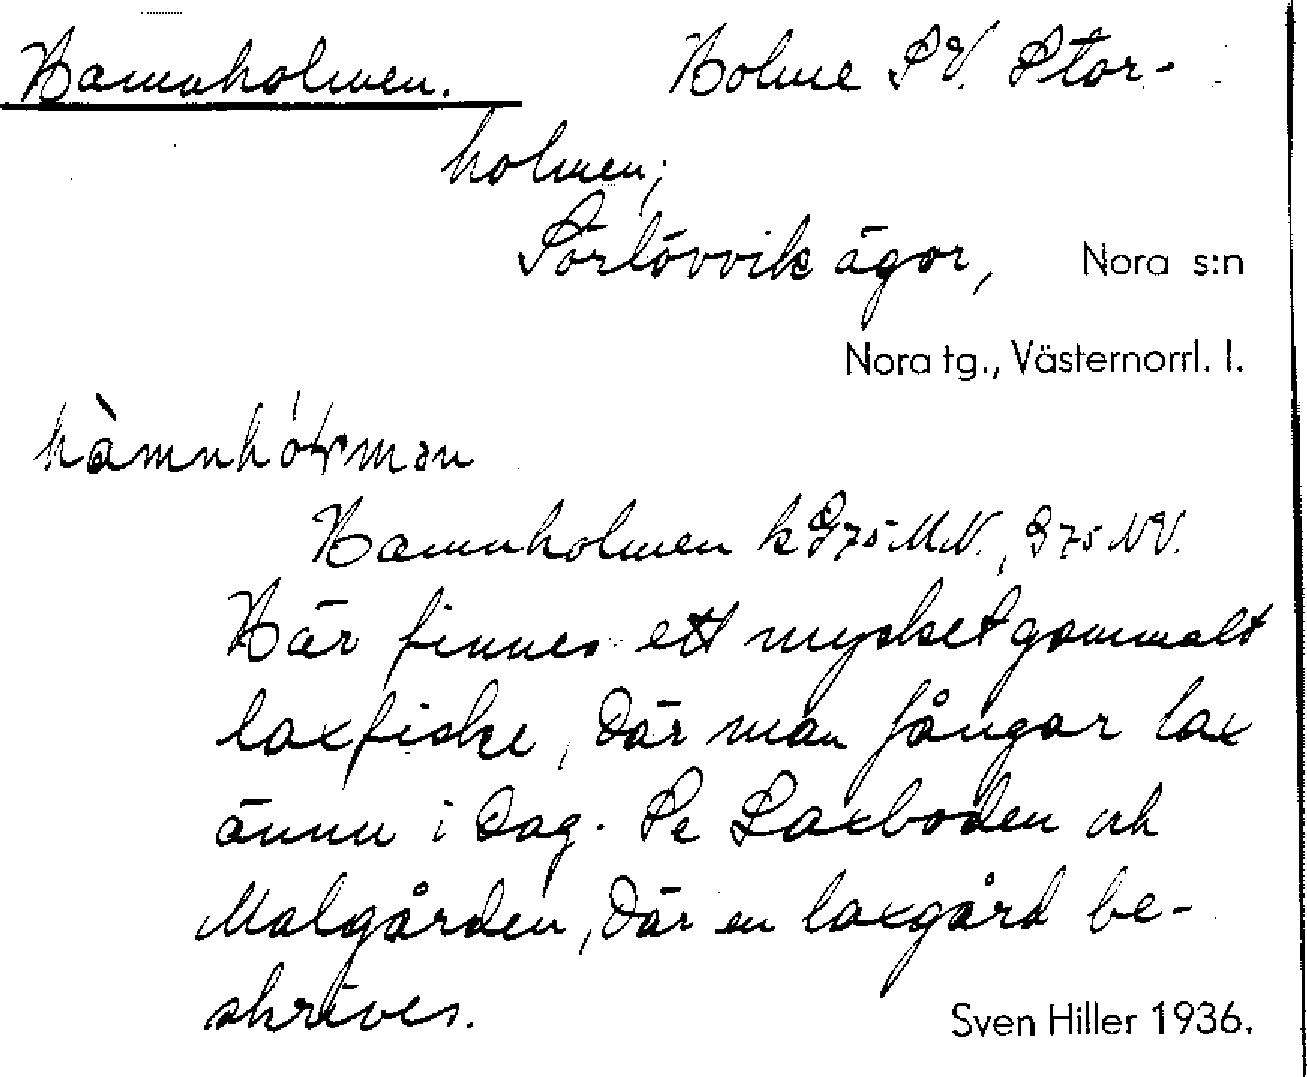 Hamnholmen. Holme SV. Stor-
holmen;
Sörlövvik ägor, Nora s:n
Nora tg., Västernorrl. l.
Hamnholmen k G75 MN., G75 NV.
Här finnes ett mycket gammalt
laxfiske, där man fångar lax
ännu i dag. Se Laxboden och
Malgården, där en laxgård be-
skrives.
Sven Hiller 1936.